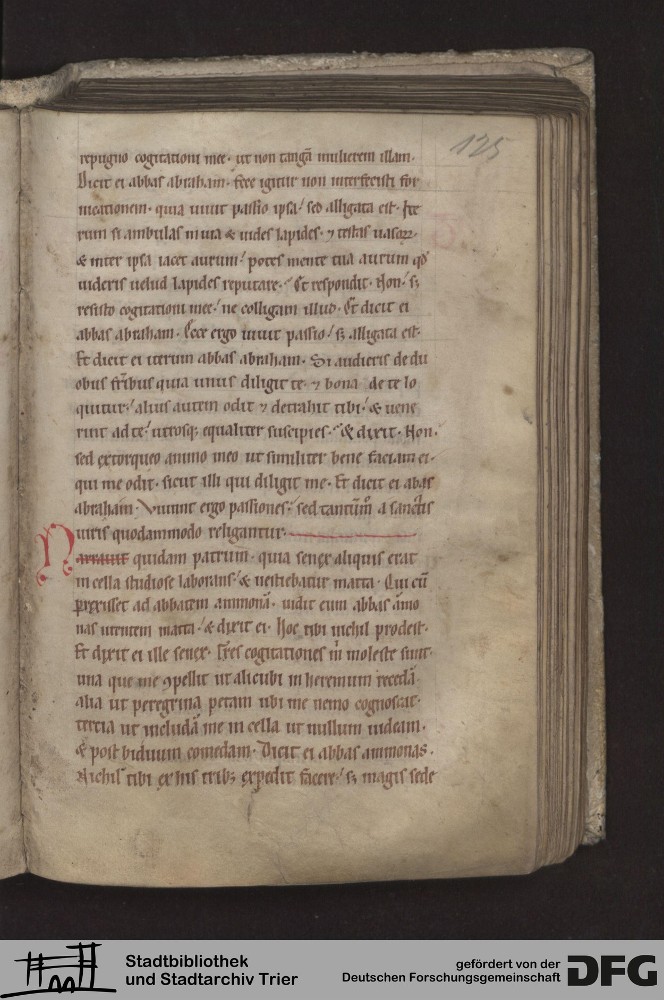 125
repugno cogitationi mee · ut non tangā mulierem illam ·
Dicit ei abbas abraham · Ecce igitur non interfecisti for
nicationem · quia uiuit passio ipsa / sed alligata est · Ite
rum si ambulas in uia & uides lapides · ⁊ testas uasoꝝ
& inter ipsa iacet aurum / potes mente tua aurum qd̄
uideris uelud lapides reputare · Et respondit · Non / sꝫ
resisto cogitationi mee / ne colligam illud · Et dicit ei
abbas abraham · Ecce ergo uiuit passio / sꝫ alligata est ·
Et dicit ei iterum abbas abraham · Si audieris de du
obus fr̄ibus quia unus diligit te · ⁊ bona de te lo
quitur / alius autem odit ⁊ detrahit tibi / & uene
rint ad te / utrosqꝫ equaliter suscipies · & dixit · Non ·
sed extorqueo animo meo ut similiter bene faciam ei ·
qui me odit · sicut illi qui diligit me · Et dicit ei abas
abraham · Viuunt ergo passiones · sed tantūm̄ a sanctis
uiris quodammodo religantur ·
Narrauit quidam patrum · quia senex aliquis erat
in cella studiose laborans / & uestiebatur matta · Qui cū
ꝑrexisset ad abbatem ammonā · uidit eum abbas āmo
nas utentem matta / & dixit ei · Hoc tibi nichil prodest ·
Et dixit ei ille senex · Tres cogitationes m̄ moleste sunt ·
una que me ꝯpellit ut alicubi in heremum recedā ·
alia ut peregrina petam ubi me nemo cognoscat ·
tertia ut includā me in cella ut nullum uideam ·
& post biduum comedam · Dicit ei abbas ammonas ·
Nichil tibi ex his tribꝫ expedit facere / sꝫ magis sede
Stadtbibliothek
und Stadtarchiv Trier
gefördert von der
Deutschen Forschungsgemeinschaft
DFG